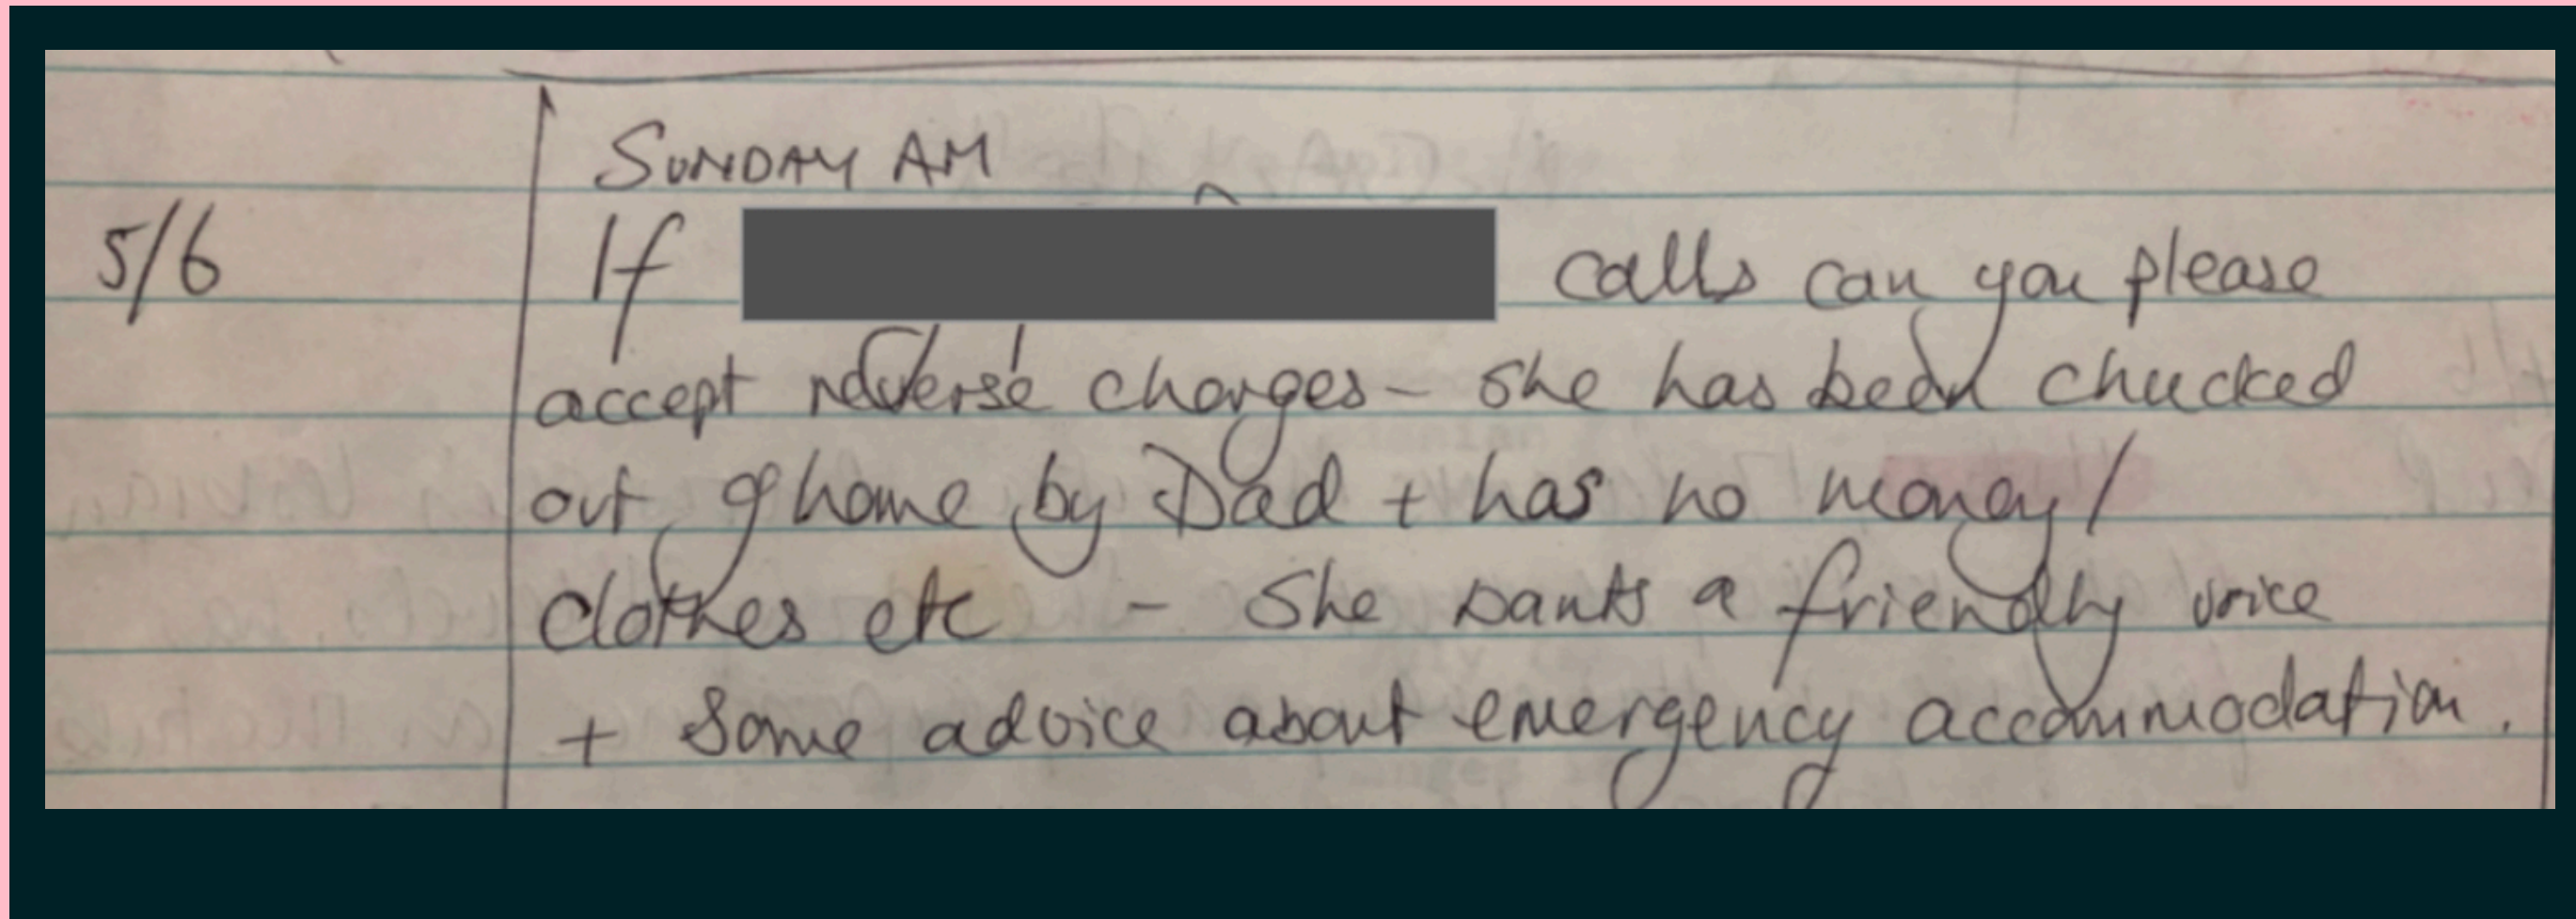 SUNDAY AM
5/6 If calls can you please
accept reverse charges - she has been chucked
out of home by Dad + has no money/
clothes etc - She wants a friendly voice
+ Some advice about emergency accommodation.